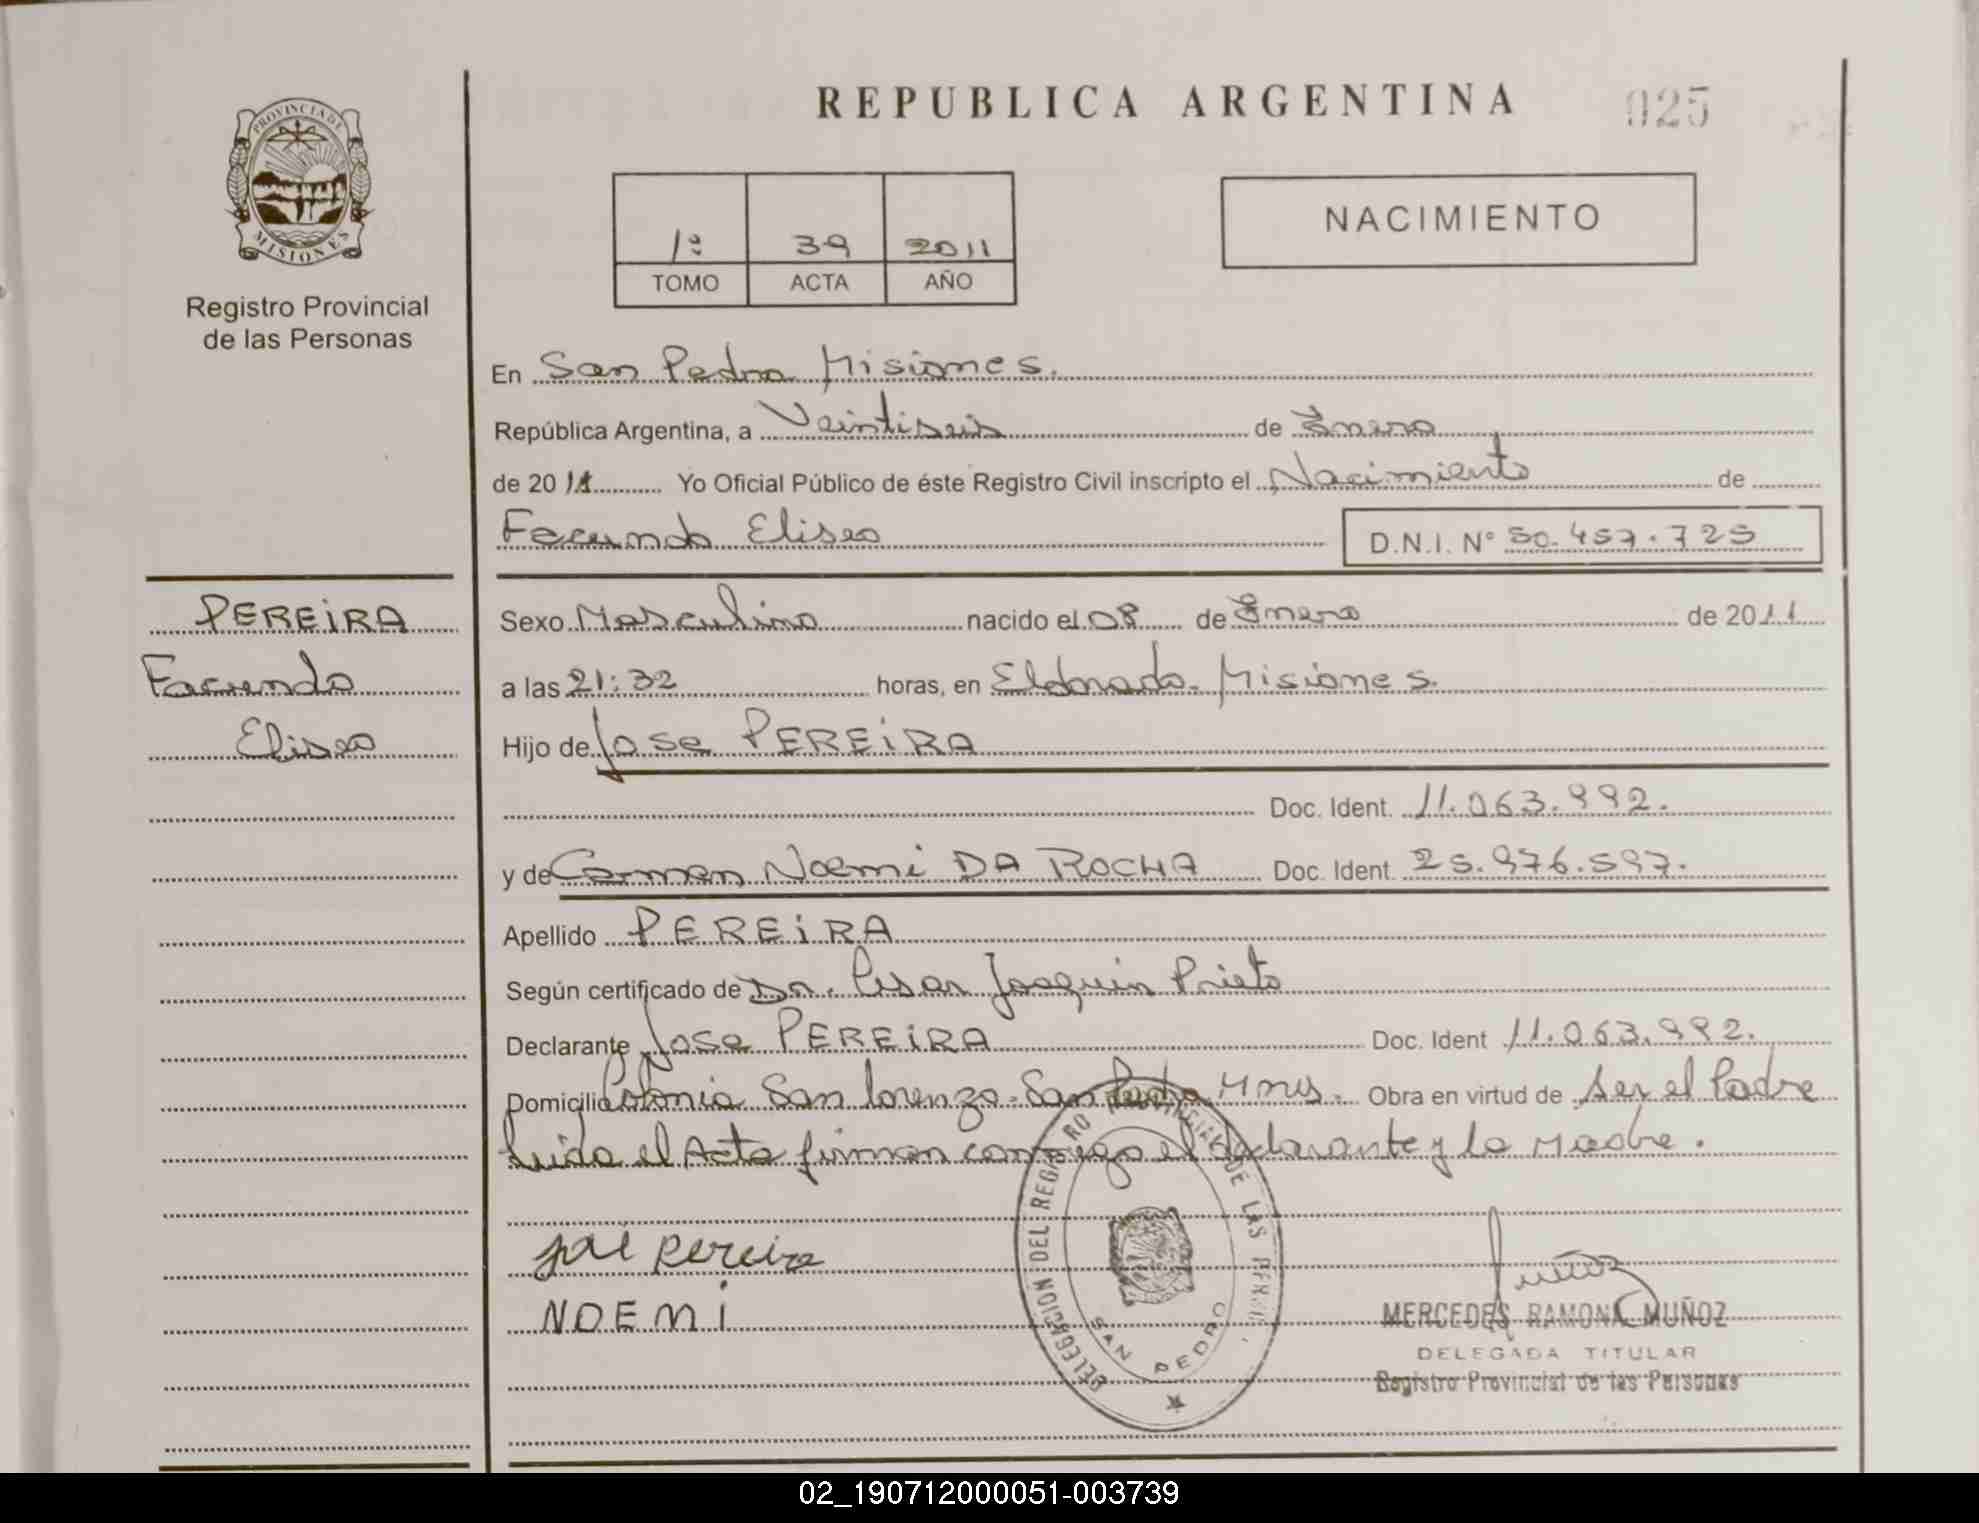 REPUBLICA ARGENTINA
025
PROVINCIA DE
MISIONES
Registro Provincial
de las Personas
1º 39 2011
TOMO ACTA AÑO
NACIMIENTO
En San Pedro Misiones.
República Argentina, a Veintiseis de Enero
de 2011 Yo Oficial Público de éste Registro Civil inscripto el Nacimiento de
Facundo Eliseo D.N.I. Nº 50.457.725
PEREIRA
Facundo
Eliseo
Sexo Masculino nacido el 08 de Enero de 2011
a las 21:32 horas, en Eldorado. Misiones.
Hijo de Jose PEREIRA
Doc. Ident. 11.063.992.
y de Carmen Noemi DA ROCHA Doc. Ident. 25.976.597.
Apellido PEREIRA
Según certificado de Dr. Cesar Joaquin Prieto
Declarante Jose PEREIRA Doc. Ident 11.063.992.
Domicilio Colonia San Lorenzo. San Pedro Mnes. Obra en virtud de ser el Padre
Leida el Acta firman conmigo el declarante y la Madre.
José Pereira
NOEMI
DELEGACION DEL REGISTRO PROVINCIAL DE LAS PERSO.
SAN PEDRO
Muñoz
MERCEDES RAMONA MUÑOZ
DELEGADA TITULAR
Registro Provincial de las Personas
02_190712000051-003739